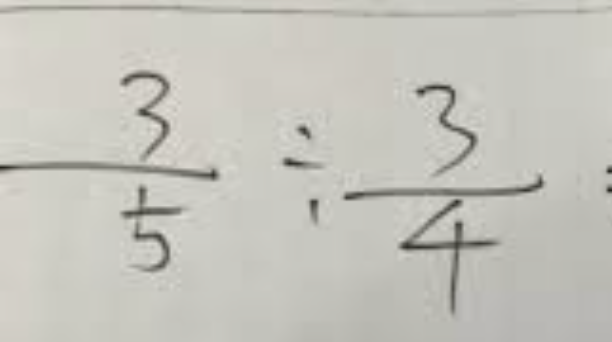 3/5 ÷ 3/4 =